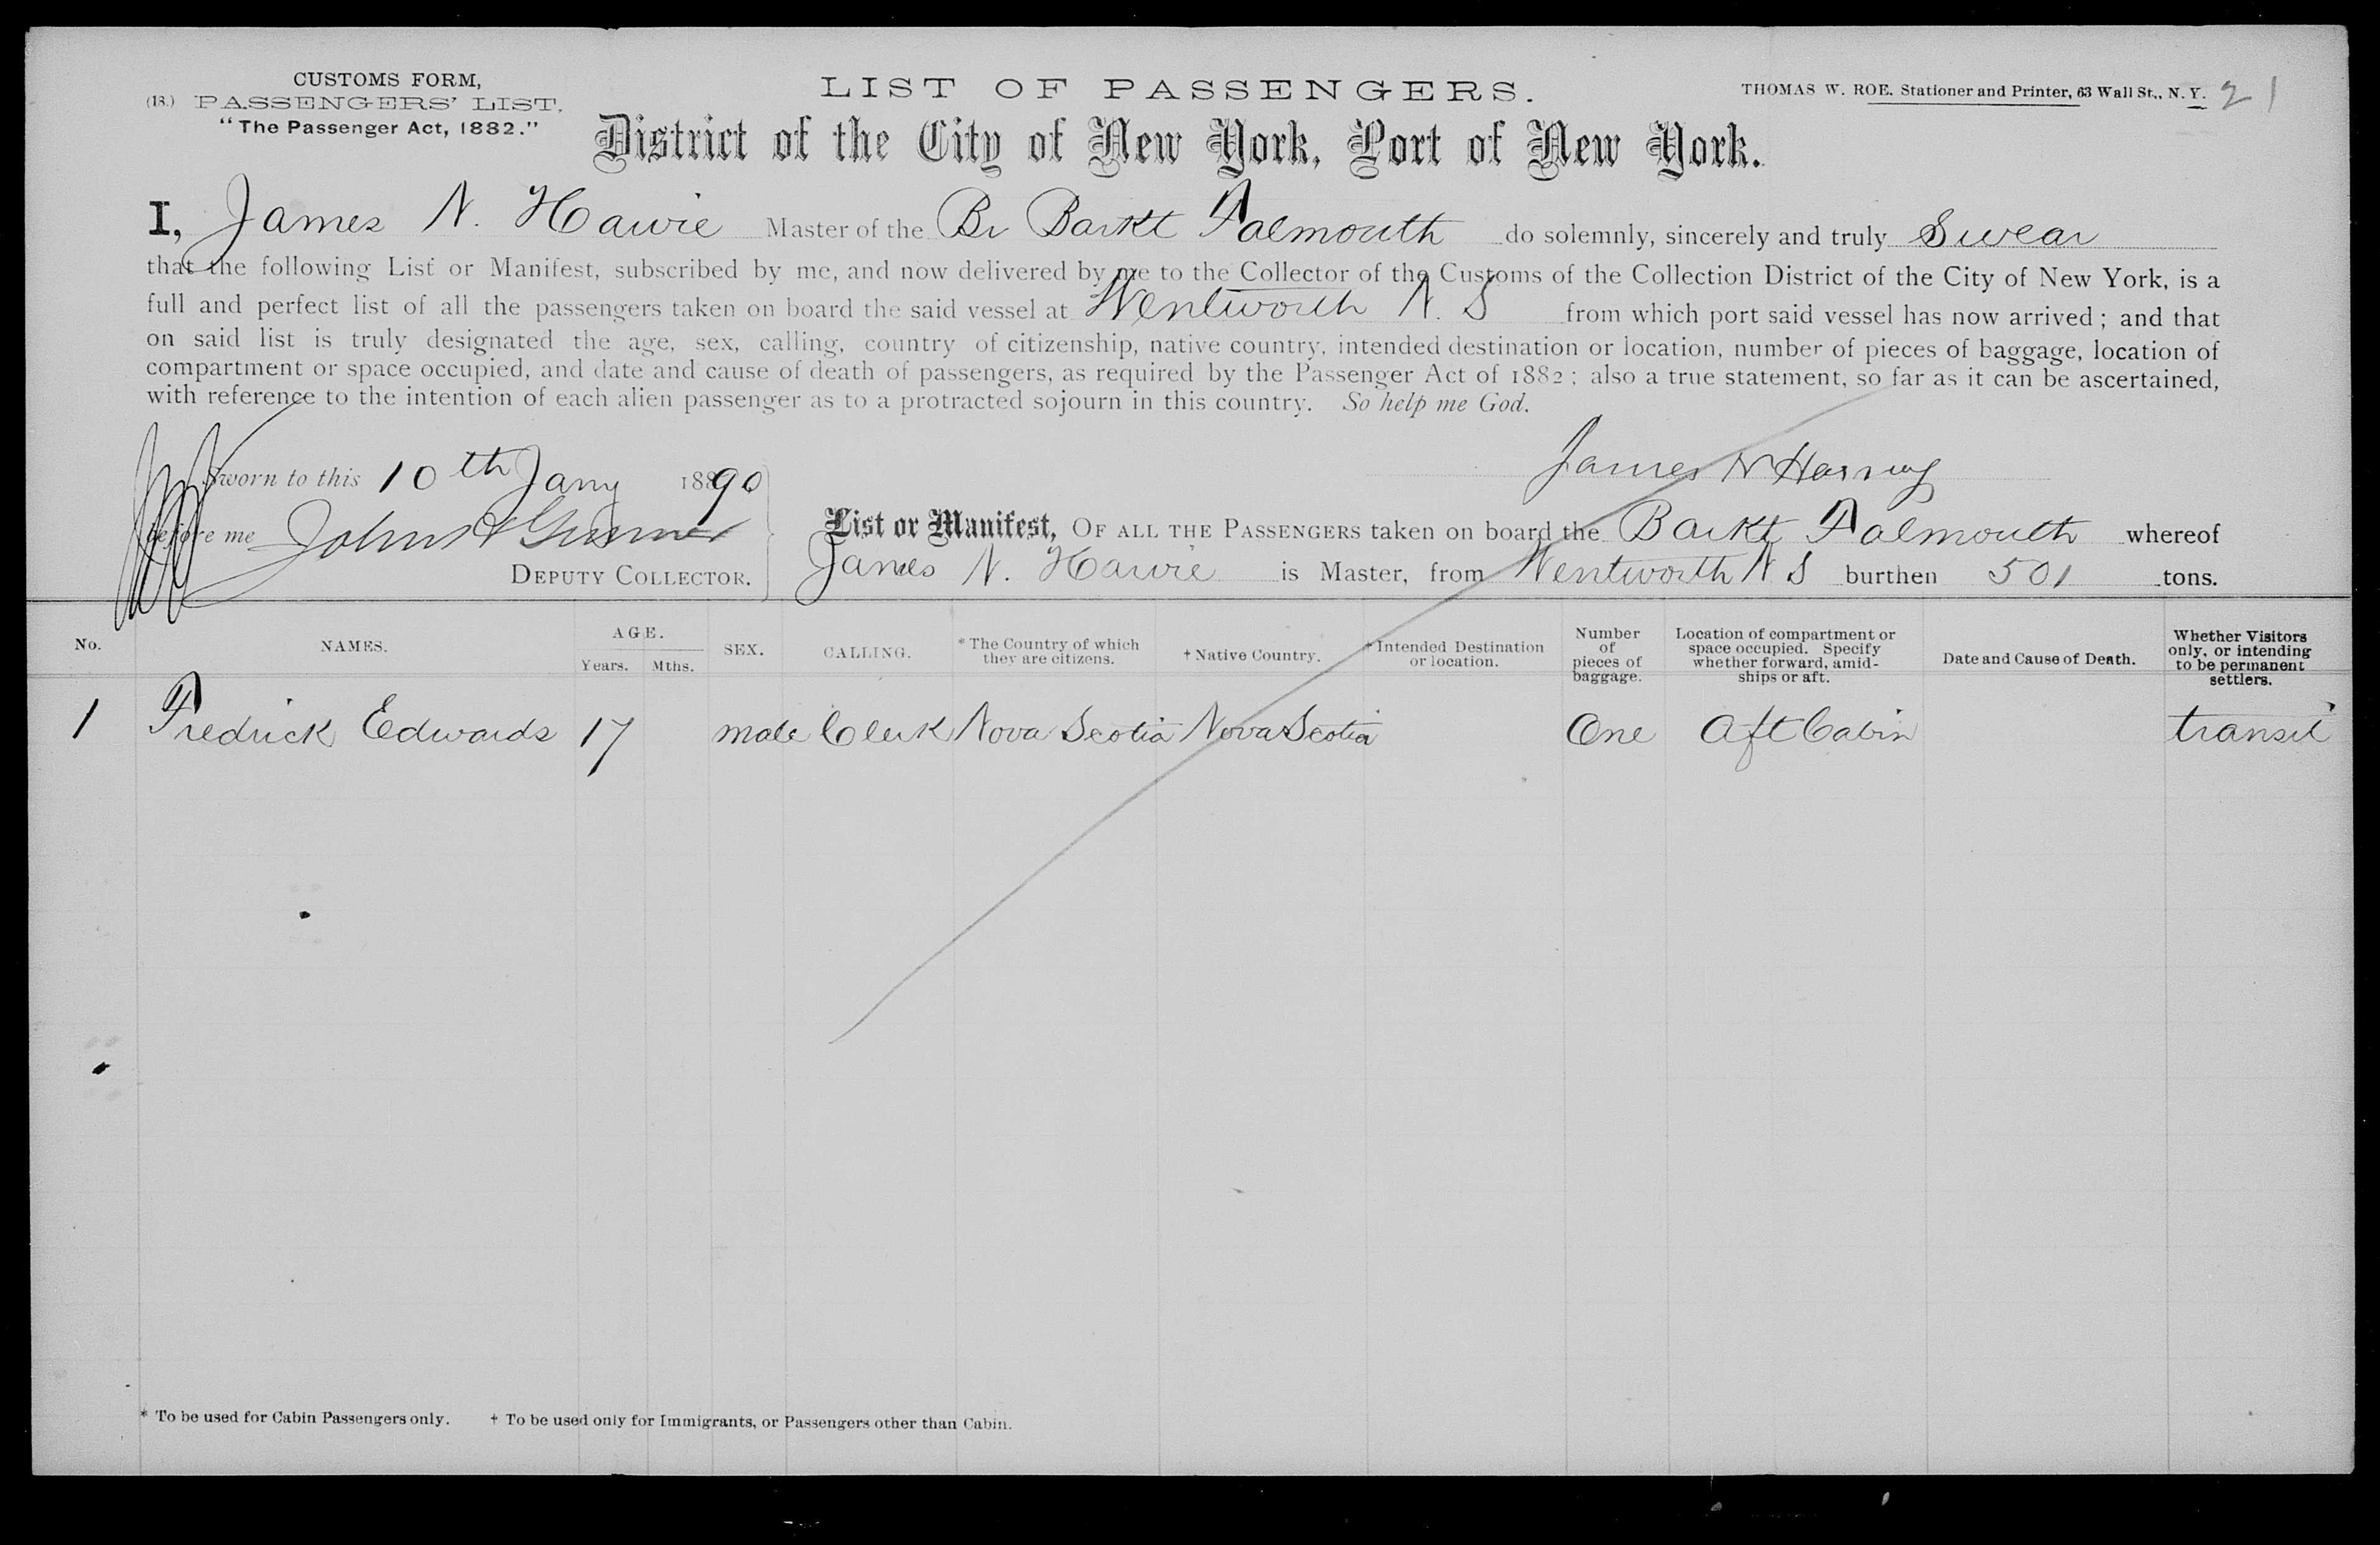 CUSTOMS FORM,
(13.) PASSENGERS' LIST.
"The Passenger Act, 1882."
LIST OF PASSENGERS.
THOMAS W. ROE. Stationer and Printer, 63 Wall St., N. Y. 21
District of the City of New York, Port of New York.
I, James N. Hawie Master of the Br Barkt Falmouth do solemnly, sincerely and truly Swear
that the following List or Manifest, subscribed by me, and now delivered by me to the Collector of the Customs of the Collection District of the City of New York, is a
full and perfect list of all the passengers taken on board the said vessel at Wentworth N. S from which port said vessel has now arrived; and that
on said list is truly designated the age, sex, calling, country of citizenship, native country, intended destination or location, number of pieces of baggage, location of
compartment or space occupied, and date and cause of death of passengers, as required by the Passenger Act of 1882; also a true statement, so far as it can be ascertained,
with reference to the intention of each alien passenger as to a protracted sojourn in this country. So help me God.
James N Harvey
Sworn to this 10th Jany 1890
before me John
DEPUTY COLLECTOR.
List or Manifest, OF ALL THE PASSENGERS taken on board the Barkt Falmouth whereof
James N. Hawie is Master, from Wentworth N S burthen 501 tons.
No. NAMES. AGE. Years. Mths. SEX. CALLING. * The Country of which they are citizens. † Native Country. † Intended Destination or location. Number of pieces of baggage. Location of compartment or space occupied. Specify whether forward, amid-ships or aft. Date and Cause of Death. Whether Visitors only, or intending to be permanent settlers.
1 Fredrick Edwards 17 male Clerk Nova Scotia Nova Scotia One Aft Cabin transit
* To be used for Cabin Passengers only. † To be used only for Immigrants, or Passengers other than Cabin.